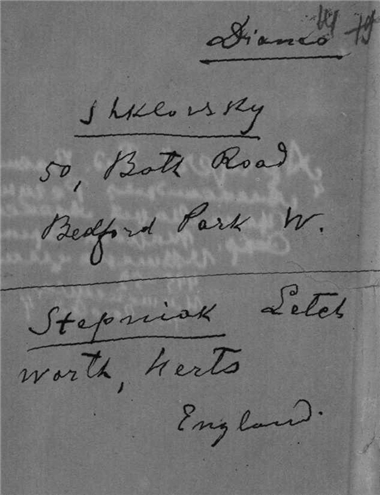 Dioneo
Shklovsky
50, Bath Road
Bedford Park W.
Stepniak Letch
worth, Herts
England.